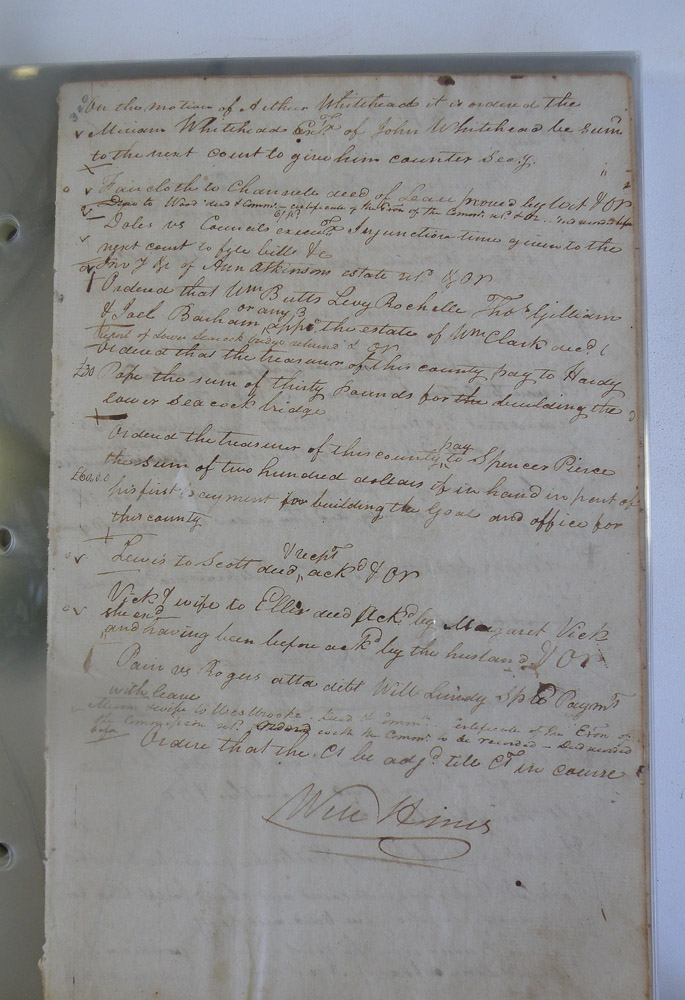 On the motion of Arthur Whitehead it is ordered the
Miriam Whitehead Exrx of John Whitehead be sumd
to the next court to give him counter secy.
Faircloth to Chansele deed of Lease proved by wit & OR
to Wood deed & Commn certificate of the Exon of the Commn
Doles vs Councils execr Injunction time given to the
next court to file bill &c
Invy &c of Ann Atkinsons estate retd & OR
Ordered that Wm Butts Levy Rochelle Thos Gilliam
& Joel Barham or any 3 appe the estate of Wm Clark decd
Report of lower Seacock bridge returned & OR
Ordered that the treasurer of this county pay to Hardy
£30 Pope the sum of thirty pounds for the building the
lower Seacock bridge
Ordered the treasurer of this county pay to Spencer Pierce
£60.0.0 the sum of two hundred dollars if in hand in part of
his first payment for building the Goal and office for
this county
Lewis to Scott deed & recpt ackd & OR
Vick & wife to Ellis deed Ackd by Margaret Vick
she end
and having been before ackd by the husband & OR
Pain vs Rogers atta debt Will Lundy Sp B Paymt
with leave
& wife to Westbrooke Deed & Commn Certificate of the Exon of
the Commission retd with the Commn to be recorded Deed recorded
before
Ordere that the Ct be adjd till Ct in course
Will Hines